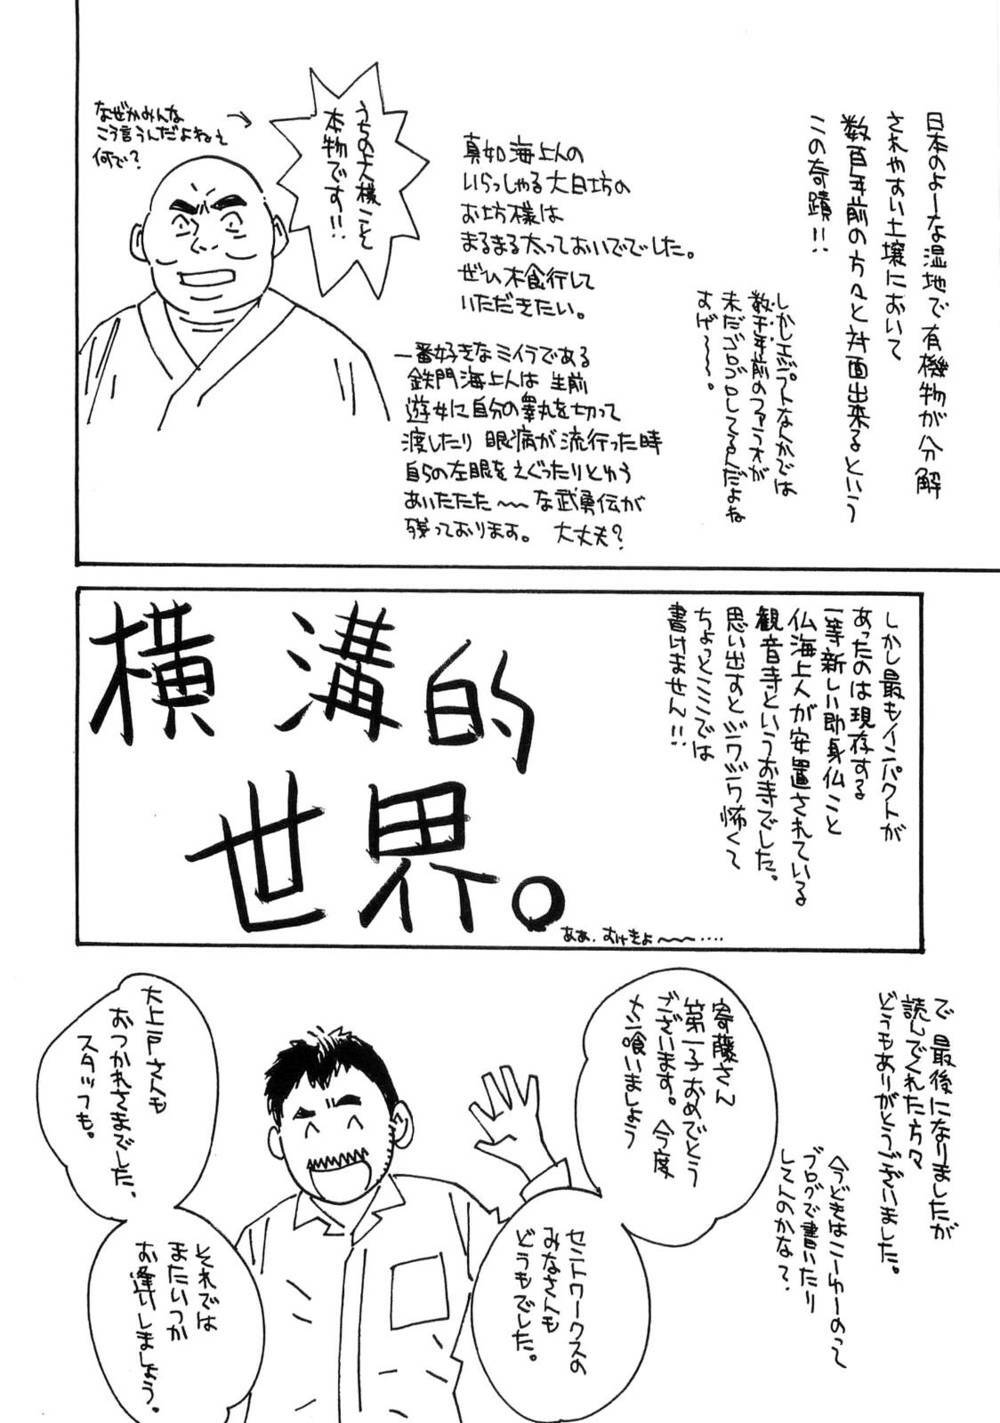 日本のよーな湿地で有機物が分解
されやすい土壌において
数百年前の方々と対面出来るという
この奇蹟!!
しかしエジプトなんかでは
数千年前のファラオが
未だゴロゴロしてるんだよね
すげ〜〜〜。
真如海上人の
いらっしゃる大日坊の
お坊様は
まるまる太っておいででした。
ぜひ木食行して
いただきたい。
うちの上人様こそ
本物です!!
なぜかみんな
こう言うんだよねぇ
何で?
一番好きなミイラである
鉄門海上人は生前
遊女に自分の睾丸を切って
渡したり眼病が流行った時
自らの左眼をえぐったりとゆう
あいたたた〜〜な武勇伝が
残っております。大丈夫?
しかし最もインパクトが
あったのは現存する
一等新しい即身仏こと
仏海上人が安置されている
観音寺というお寺でした。
思い出すとジワジワ怖くて
ちょっとここでは
書けません!!
横溝的
世界。
ああ、むけきよ〜〜‥‥
で、最後になりましたが
読んでくれた方々
どうもありがとうございました。
今どきはこーゆーのって
ブログで書いたり
してんのかな?
寄藤さん
第一子おめでとう
ございます。今度
メシ喰いましょう
セントワークスの
みなさんも
どうもでした。
大上戸さんも
おつかれさまでした。
スタッフも。
それでは
またいつか
お逢いしましょう。